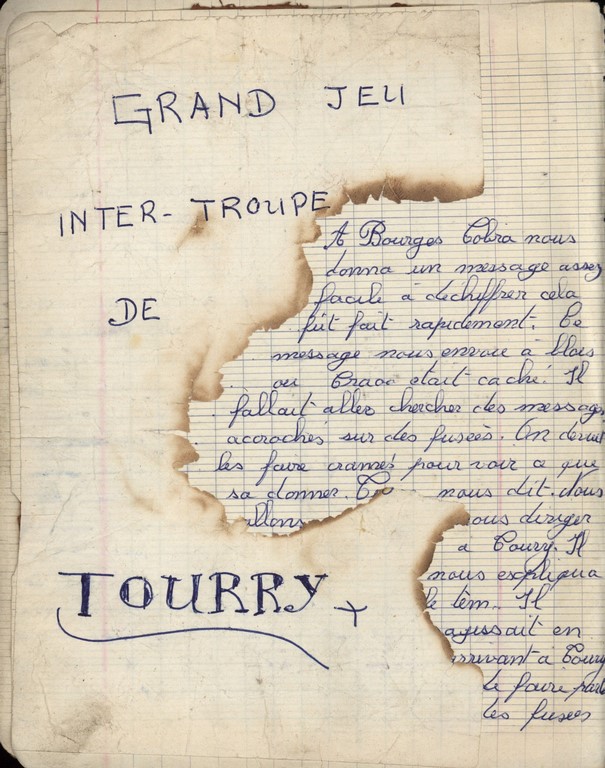 GRAND JEU
INTER-TROUPE
DE
TOURRY
A Bourges Cobra nous
donna un message assez
facile à dechiffrer cela
fût fait rapidement. Ce
message nous envoie à blois
ou était caché. Il
fallait aller chercher des messages
accrochés sur des fuseés. On devait
les faire cramés pour voir ce que
sa donner. nous dit. Nous
allons nous diriger
a Toury. Il
nous expliqua
le tèm. Il
agissait en
arrivant à Toury
de faire parti
les fusées